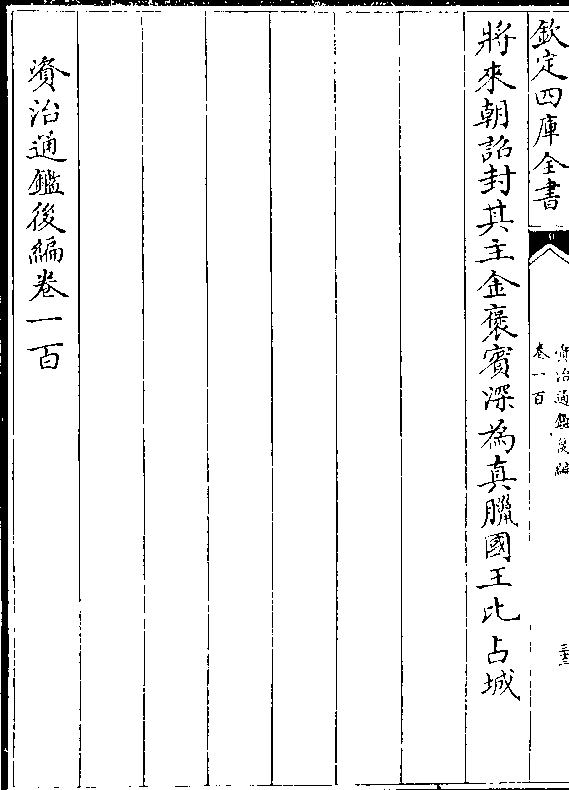 欽定四庫全書
資治通鑑後編
卷一百
三十三
將來朝詔封其主金裒賓深為真臘國王比占城
資治通鑑後編卷一百